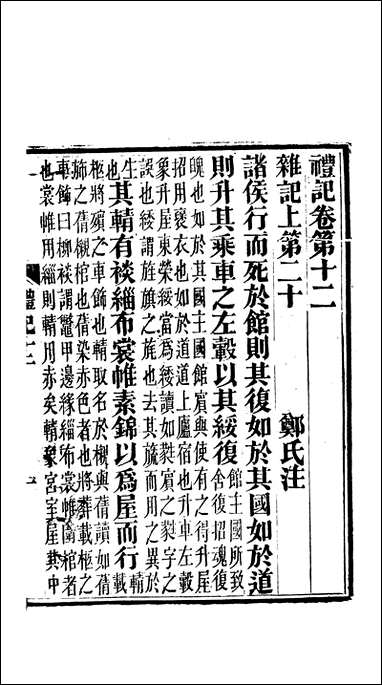 禮記卷第十二
雜記上第二十 鄭氏注
諸侯行而死於館則其復如於其國如於道
則升其乘車之左轂以其綏復館主國所致舍復招魂復
魄也如於其國主國館賓與使有之得升屋
招用褒衣也如於道道上廬宿也升車左轂
象升屋東榮綏當爲緌讀如蕤賓之蕤字之
誤也緌謂旌旗之旄也去其旒而用之異於
生也其輤有裧緇布裳帷素錦以爲屋而行輤載
柩將殯之車飾也輤取名於櫬與蒨讀如蒨
旆之蒨櫬棺也蒨染赤色者也將葬載柩之
車飾曰柳裧謂鼈甲邊緣緇布裳帷圍棺者
也裳帷用緇則輤用赤矣輤象宮室屋其中
禮記十二
一